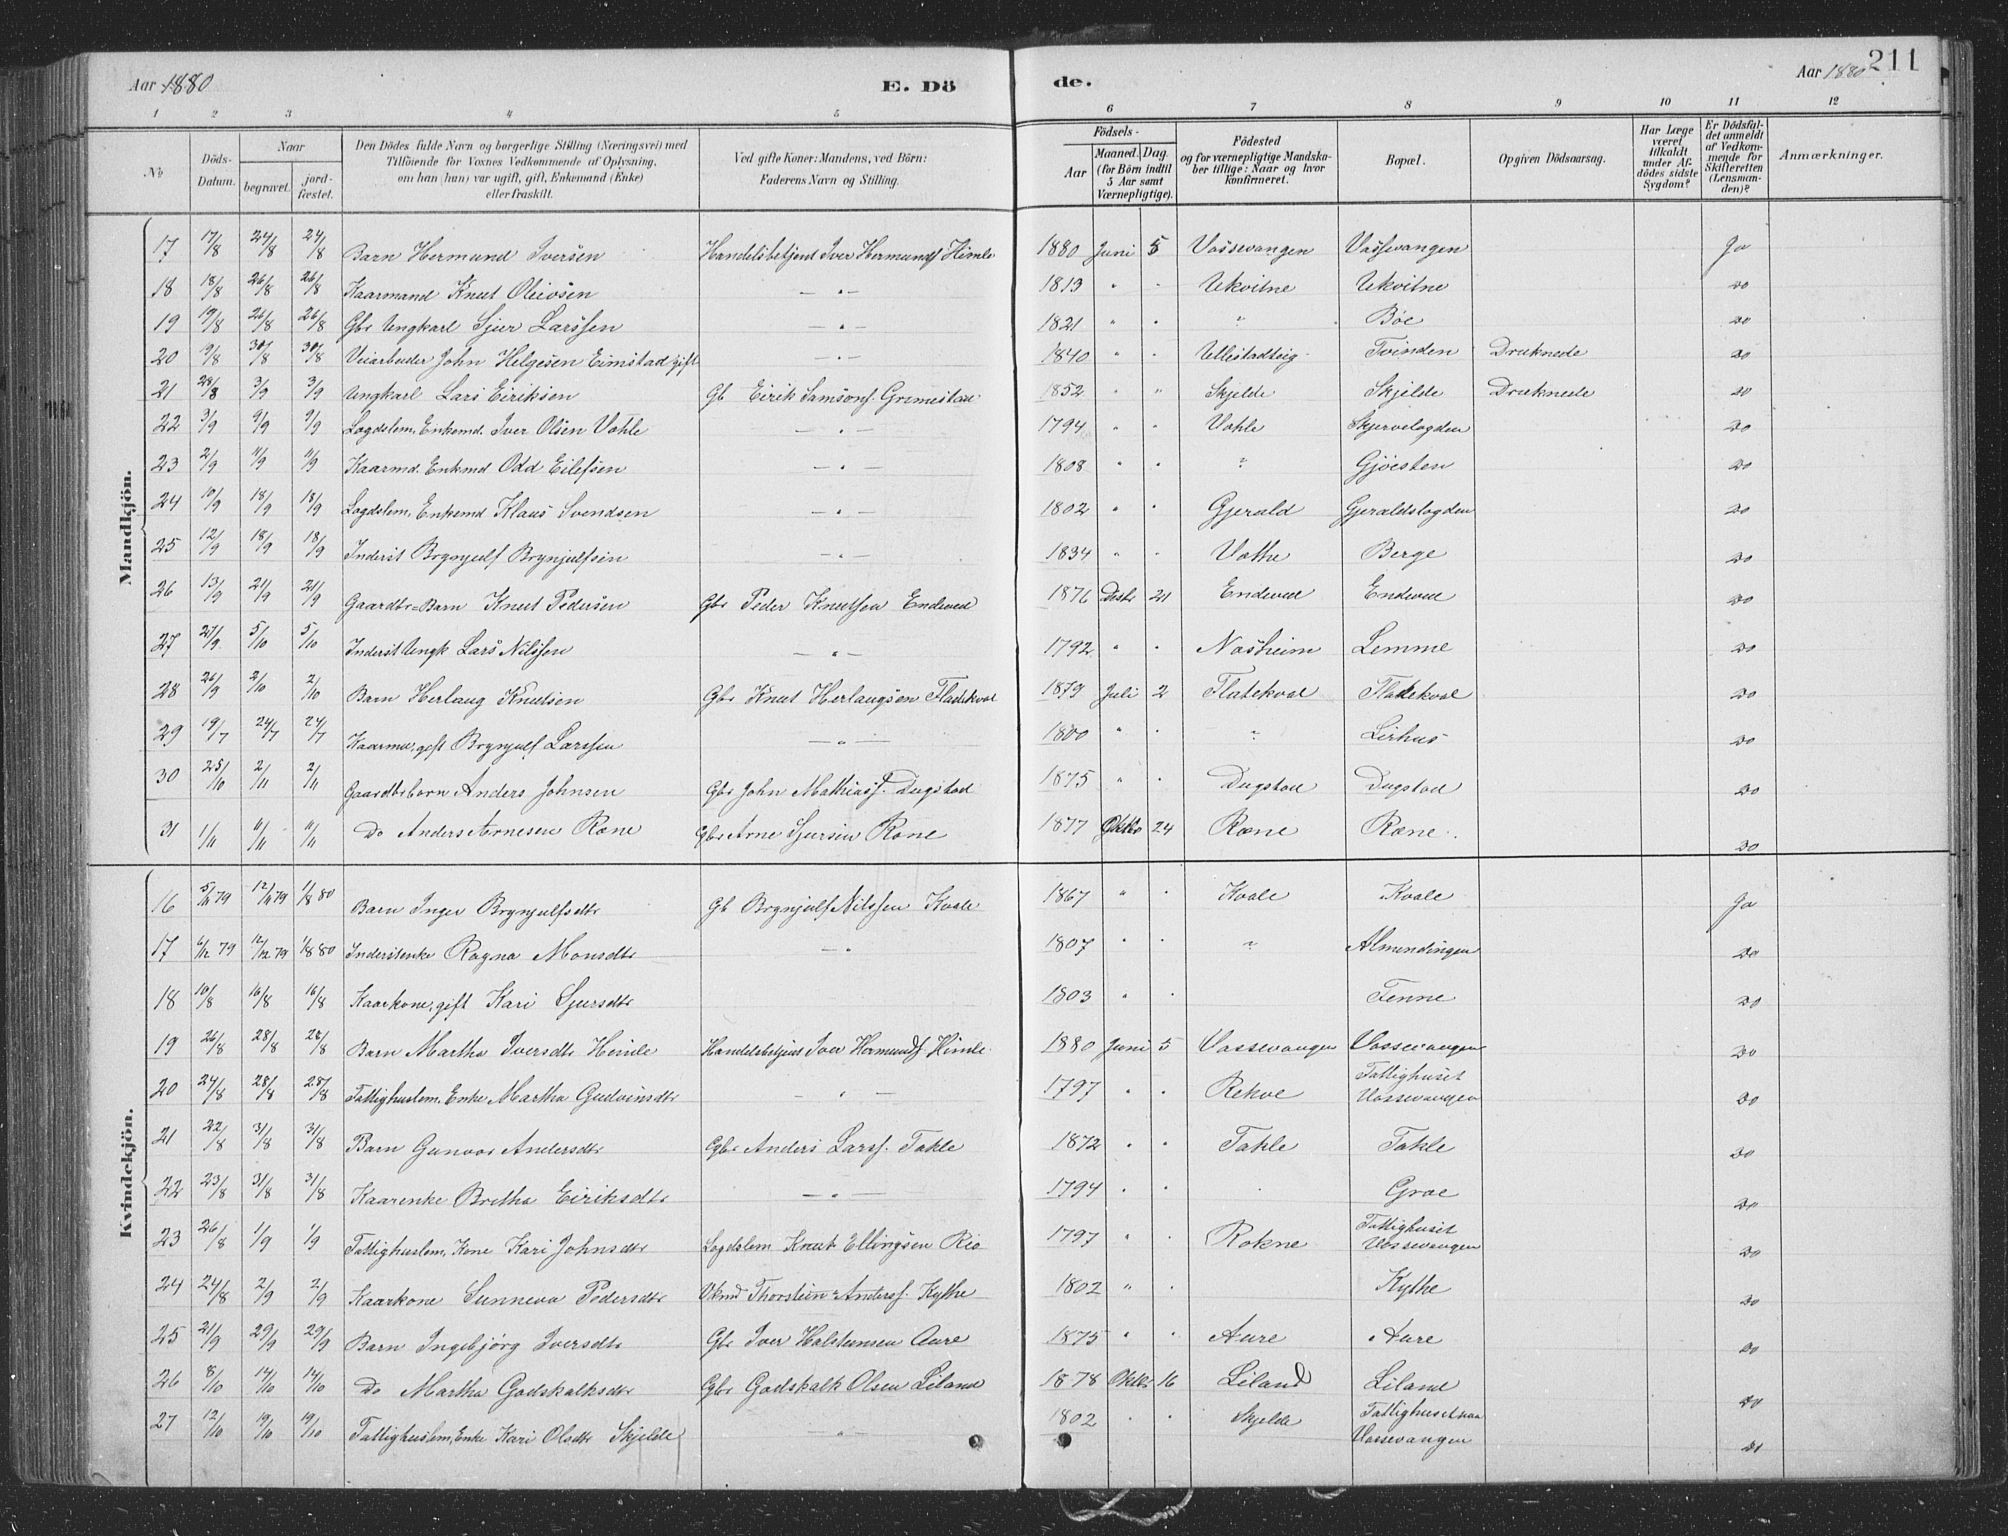 Aar 1880 E. Dö de. Aar 1880 211
1 2 3 4 5 6 7 8 9 10 11 12
No Döds-Datum. Naar begravet. jordfæstet. Den Dödes fulde Navn og borgerlige Stilling (Næringsvei) med Tilföiende for Voxnes Vedkommende af Oplysning, om han (hun) var ugift, gift, Enkemand (Enke) eller fraskilt. Ved gifte Koner: Mandens, ved Börn: Faderens Navn og Stilling. Födsels- Aar Maaned. Dag. (for Börn indtil 5 Aar samt Værnepligtige). Födested og for værnepligtige Mandskaber tillige: Naar og hvor konfirmeret. Bopæl. Opgiven Dödsaarsag. Har Læge været tilkaldt under Afdödes sidste Sygdom? Er Dödsfaldet anmeldt af Vedkommende for Skifteretten (Lensmanden)? Anmærkninger.
Mandkjön.
17 17/8 24/8 24/8 Barn Hermund Iversen Handelsbetjent Iver Hermunds. Himle 1880 Juni 5 Vossevangen Vossevangen Ja
18 18/8 26/8 26/8 Kaarmand Knut Oleivsen — " — 1813 " " Ukvitne Ukvitne Do
19 19/8 26/8 26/8 Gbr Ungkarl Sjur Larssen — " — 1821 " " " Böe Do
20 9/8 30/8 30/8 Veiarbeider John Helgesen Eimstad gift — " — 1840 " " Ullestadteig Tvinden Druknede Do
21 28/8 3/9 3/9 Ungkarl Lars Eiriksen Gb Eirik Samsons. Grimestad 1852 " " Skjelde Skjelde Druknede Do
22 3/9 9/9 9/9 Lægdslem, Enkemd. Iver Olsen Vahle — " — 1794 " " Vahle Skjervelægden Do
23 2/9 11/9 11/9 Kaarmd. Enkmd Odd Eilefsen — " — 1808 " " " Gjöesten Do
24 10/9 18/9 18/9 Lægdslem, Enkemd Klaus Svendsen — " — 1802 " " Gjerald Gjeraldslægden Do
25 12/9 18/9 18/9 Inderst Brynjulf Brynjulfsen — " — 1834 " " Vathe Berge Do
26 13/9 21/9 21/9 Gaardbr-Barn Knut Pedersen Gbr Peder Knutsen Endeved 1876 Decbr 21 Endeved Endeved Do
27 27/9 5/10 5/10 Inderst Ungk Lars Nilssen — " — 1792 " " Næsheim Lemme Do
28 26/9 2/10 2/10 Barn Herlaug Knutsen Gbr Knut Herlaugsen Fladekval 1879 Juli 2 Flatekval Fladekval Do
29 19/7 24/7 24/7 Kaarmd, gift Brynjulf Larssen — " — 1800 " " " Lirhus Do
30 25/10 2/11 2/11 Gaardbrbarn Anders Johnsen Gbr John Mathiass. Dugstad 1875 " " Dugstad Dugstad Do
31 1/11 6/11 6/11 Do Anders Arnesen Röne Gbr Arne Sjursen Röne 1877 Oktbr 24 Röne Röne Do
Kvindekjön.
16 5/12 79 12/12 79 1/8 80 Barn Inger Brynjulfsdtr Gb Brynjulf Nilssen Kvale 1867 " " Kvale Kvale Ja
17 6/12 79 12/12 79 1/8 80 Inderstenke Ragna Monsdtr — " 1807 " " " Almendingen Do
18 10/8 16/8 16/8 Kaarkone, gift Kari Sjursdtr 1803 " " Tenne Do
19 26/8 28/8 28/8 Barn Martha Iversdtr Himle Handelsbetjent Iver Hermunds. Himle 1880 Juni 5 Vossevangen Vossevangen Do
20 24/8 28/8 28/8 Fattighuslem, Enke Martha Gudvinsdtr — " — 1797 " " Rekve Fattighuset Vossevangen Do
21 22/8 31/8 31/8 Barn Gunvor Andersdtr Gbr Anders Larss. Takle 1872 " " Takle Takle Do
22 23/8 31/8 31/8 Kaarenke Bretha Eiriksdtr — " — 1794 " " " Groe Do
23 26/8 1/9 1/9 Fattighuslem, Kone Kari Johnsdtr Lægdslem Knut Ellingsen Rio 1797 " " Rokne Fattighuset Vossevangen Do
24 24/8 2/9 2/9 Kaarkone Sunneva Pedersdtr Thorstein Anderss. Kythe 1802 " Kythe Do
25 21/9 29/9 29/9 Barn Ingebjörg Iversdtr Gbr Iver Halstensen Aure 1875 " " Aure Aure Do
26 8/10 14/10 14/10 Do Martha Godskalksdtr Gbr Godskalk Olsen Liland 1878 Oktbr 16 Liland Liland Do
27 12/10 19/10 19/10 Fattighuslem, Enke Kari Olsdtr Skjelde — " — 1802 " " Skjelde Fattighuset paa Vossevangen Do